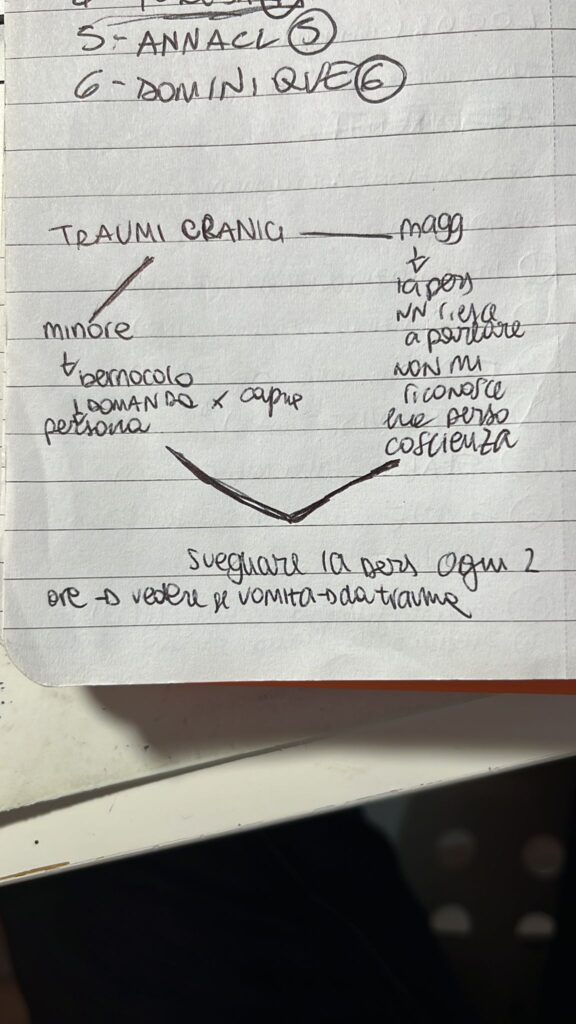 5-ANNACL 5
6-DOMINIQUE 6
TRAUMI CRANICI magg
minore
la pers
NN riesce
a parlare
bernocolo
NON mi
DOMANDE x capire
riconosce
persona
ha perso
coscienza
svegliare la pers ogni 2
ore → vedere se vomita → da trauma